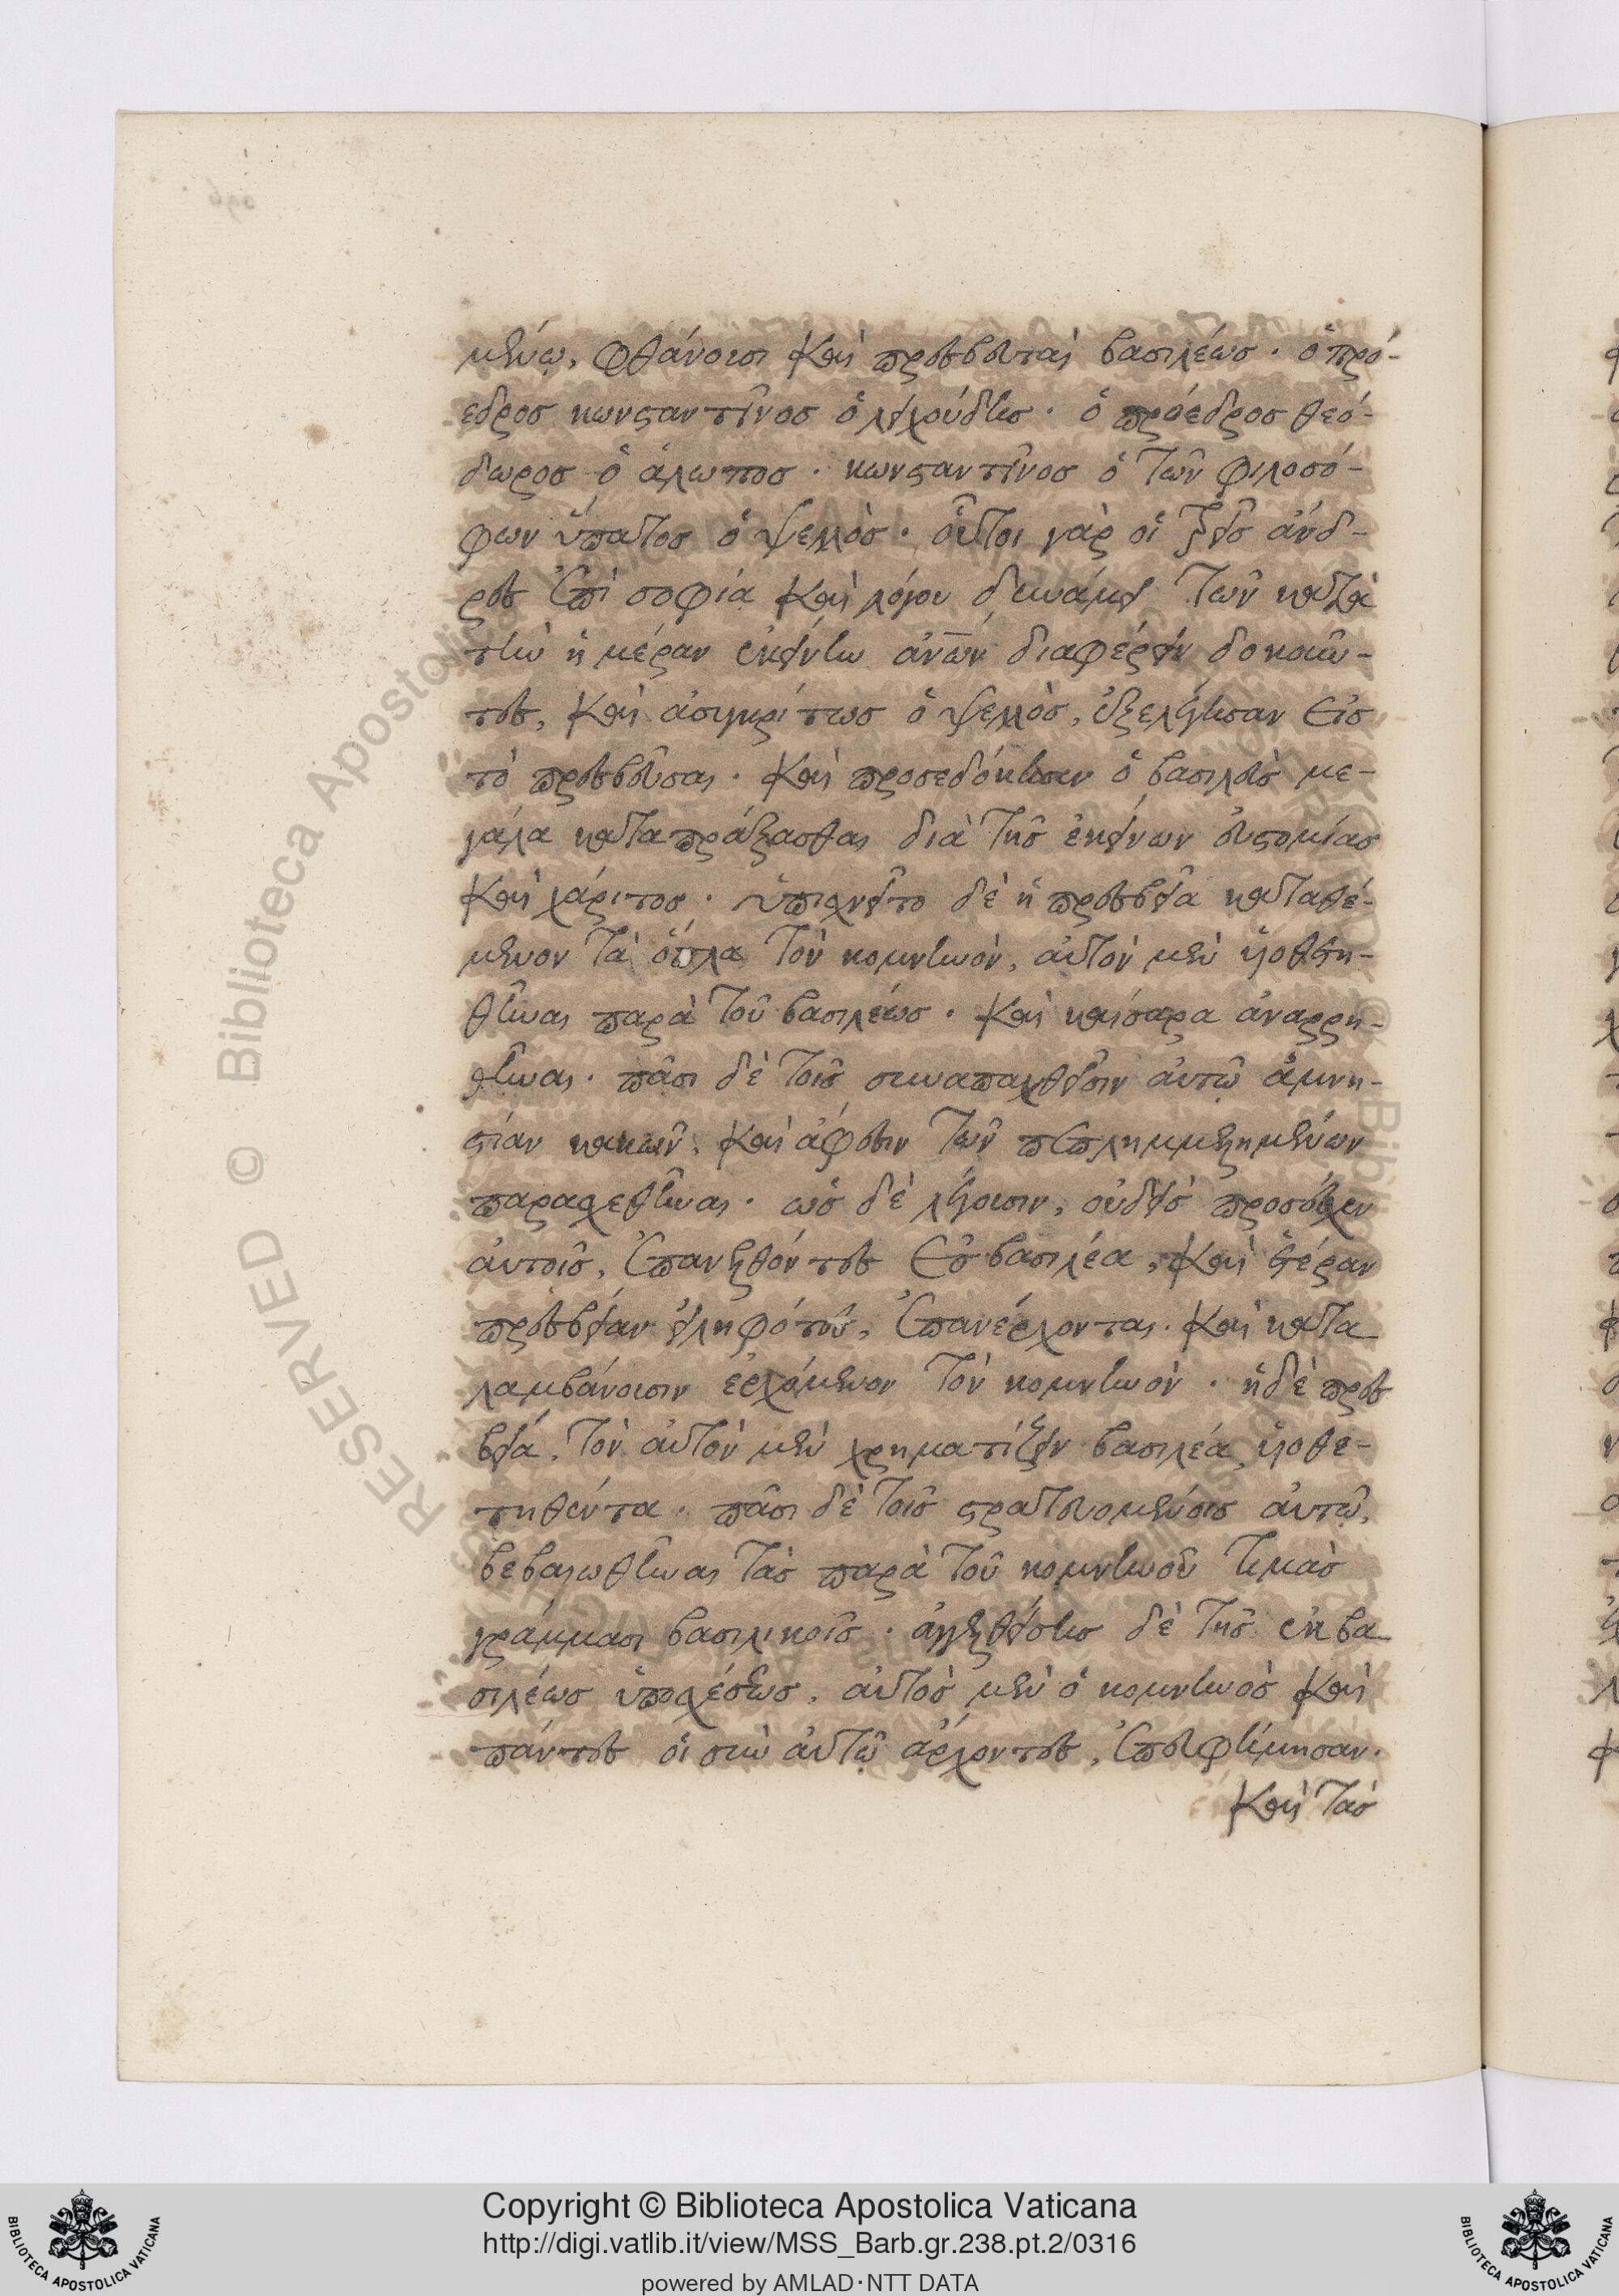 μένω, φθάνουσι καὶ πρεσβευταὶ βασιλέως· ὁ πρό-
εδρος κωνσταντῖνος ὁ λειχούδης· ὁ πρόεδρος θεό-
δωρος ὁ ἀλωπος· κωνσταντῖνος ὁ τῶν φιλοσό-
φων ὕπατος ὁ ψελλὸς· οὗτοι γὰρ οἱ τρεῖς ἄνδ-
ρες ἐπὶ σοφία καὶ λόγου δυνάμει τῶν κατὰ
τὴν ἡμέραν ἐκείνην ἀνων διαφέρειν δοκοῦν-
τες, καὶ ἀσυγκρίτως ὁ ψελλὸς, ἐξελέγησαν εἰς
τὸ πρεσβεῦσαι· καὶ προσεδόκησεν ὁ βασιλεὺς με-
γάλα καταπράξασθαι διὰ τῆς ἐκείνων εὐστομίας
καὶ χάριτος· ὑπισχνεῖτο δὲ ἡ πρεσβεία καταθέ-
μενον τὰ ὅπλα τὸν κομνηνὸν, αὐτὸν μὲν υἱοθετη-
θῆναι παρὰ τοῦ βασιλέως· καὶ καίσαρα ἀναρρη-
θῆναι· πᾶσι δὲ τοῖς συναπαχθεῖσιν αὐτῶ ἀμνη-
στίαν κακῶν, καὶ ἄφεσιν τῶν πεπλημμελημένων
παρασχεθῆναι· ὡς δὲ λέγουσιν, οὐδεὶς προσέσχεν
αὐτοῖς, ἐπανελθόντες εἰς βασιλέα, καὶ ἑτέραν
πρεσβείαν εἰληφότες, ἐπανέρχονται· καὶ κατα
λαμβάνουσιν ἐρχόμενον τὸν κομνηνὸν· ἡ δὲ πρεσ
βεία, τὸν αὐτὸν μὲν χρηματίζειν βασιλέα υἱοθε-
τηθέντα· πᾶσι δὲ τοῖς στρατευομένοις αὐτῶ,
βεβαιωθῆναι τὰς παρὰ τοῦ κομνηνοῦ τιμὰς
γράμμασι βασιλικοῖς· ἀγγελθείσης δὲ τῆς ἐκ βα
σιλέως ὑποσχέσεως, αὐτὸς μὲν ὁ κομνηνὸς καὶ
πάντες οἱ σὺν αὐτῶ ἄρχοντες, ἐπευφήμησαν·
καὶ τὰς
RESERVED © Biblioteca Apostolica
BIBLIOTECA APOSTOLICA VATICANA
Copyright © Biblioteca Apostolica Vaticana
http://digi.vatlib.it/view/MSS_Barb.gr.238.pt.2/0316
powered by AMLAD·NTT DATA
BIBLIOTECA APOSTOLICA VATICANA